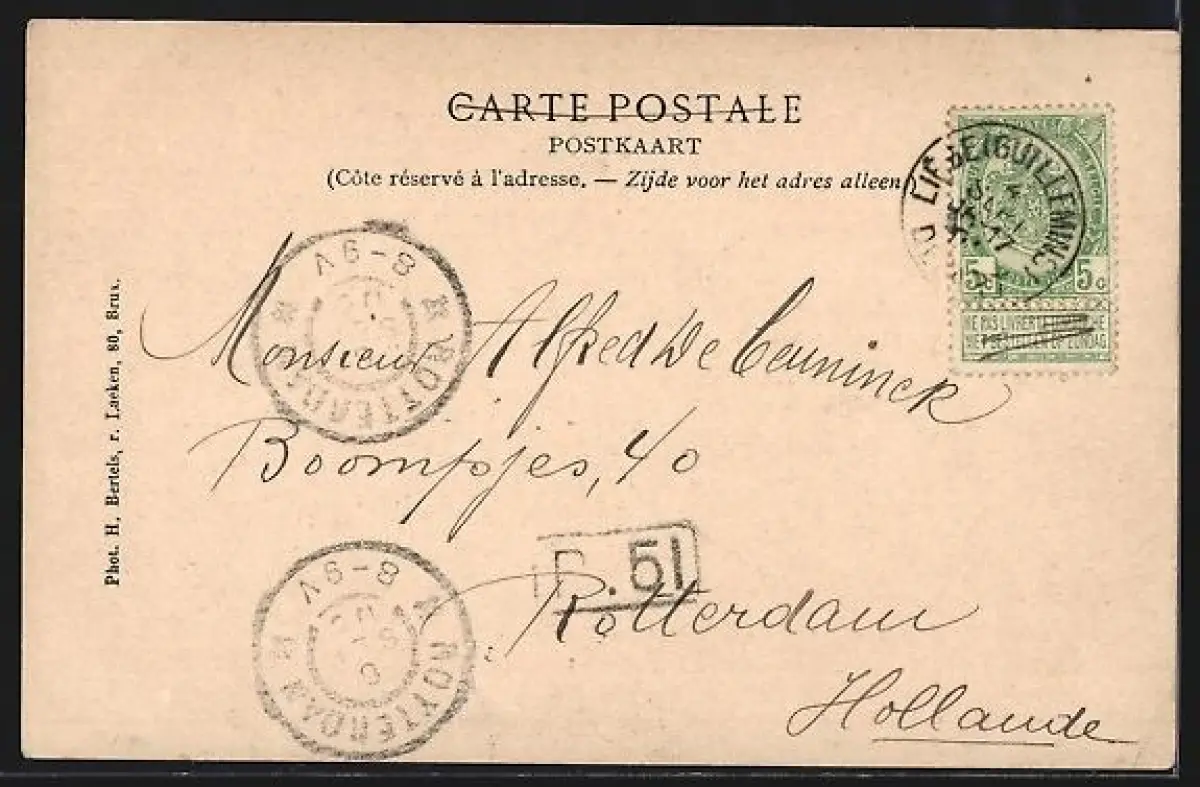 CARTE POSTALE
POSTKAART
(Côte réservé à l'adresse. — Zijde voor het adres alleen
5c 5c
NE PAS LIVRER LE DIMANCHE
NIET BESTELLEN OP ZONDAG
8-9V
ROTTERDAM
Monsieur Alfred De Ceuninck
Boompjes, 40
P. 51
Rotterdam
Hollande
8-9V
ROTTERDAM
Phot. H. Bertels, r. Laeken, 80, Brux.